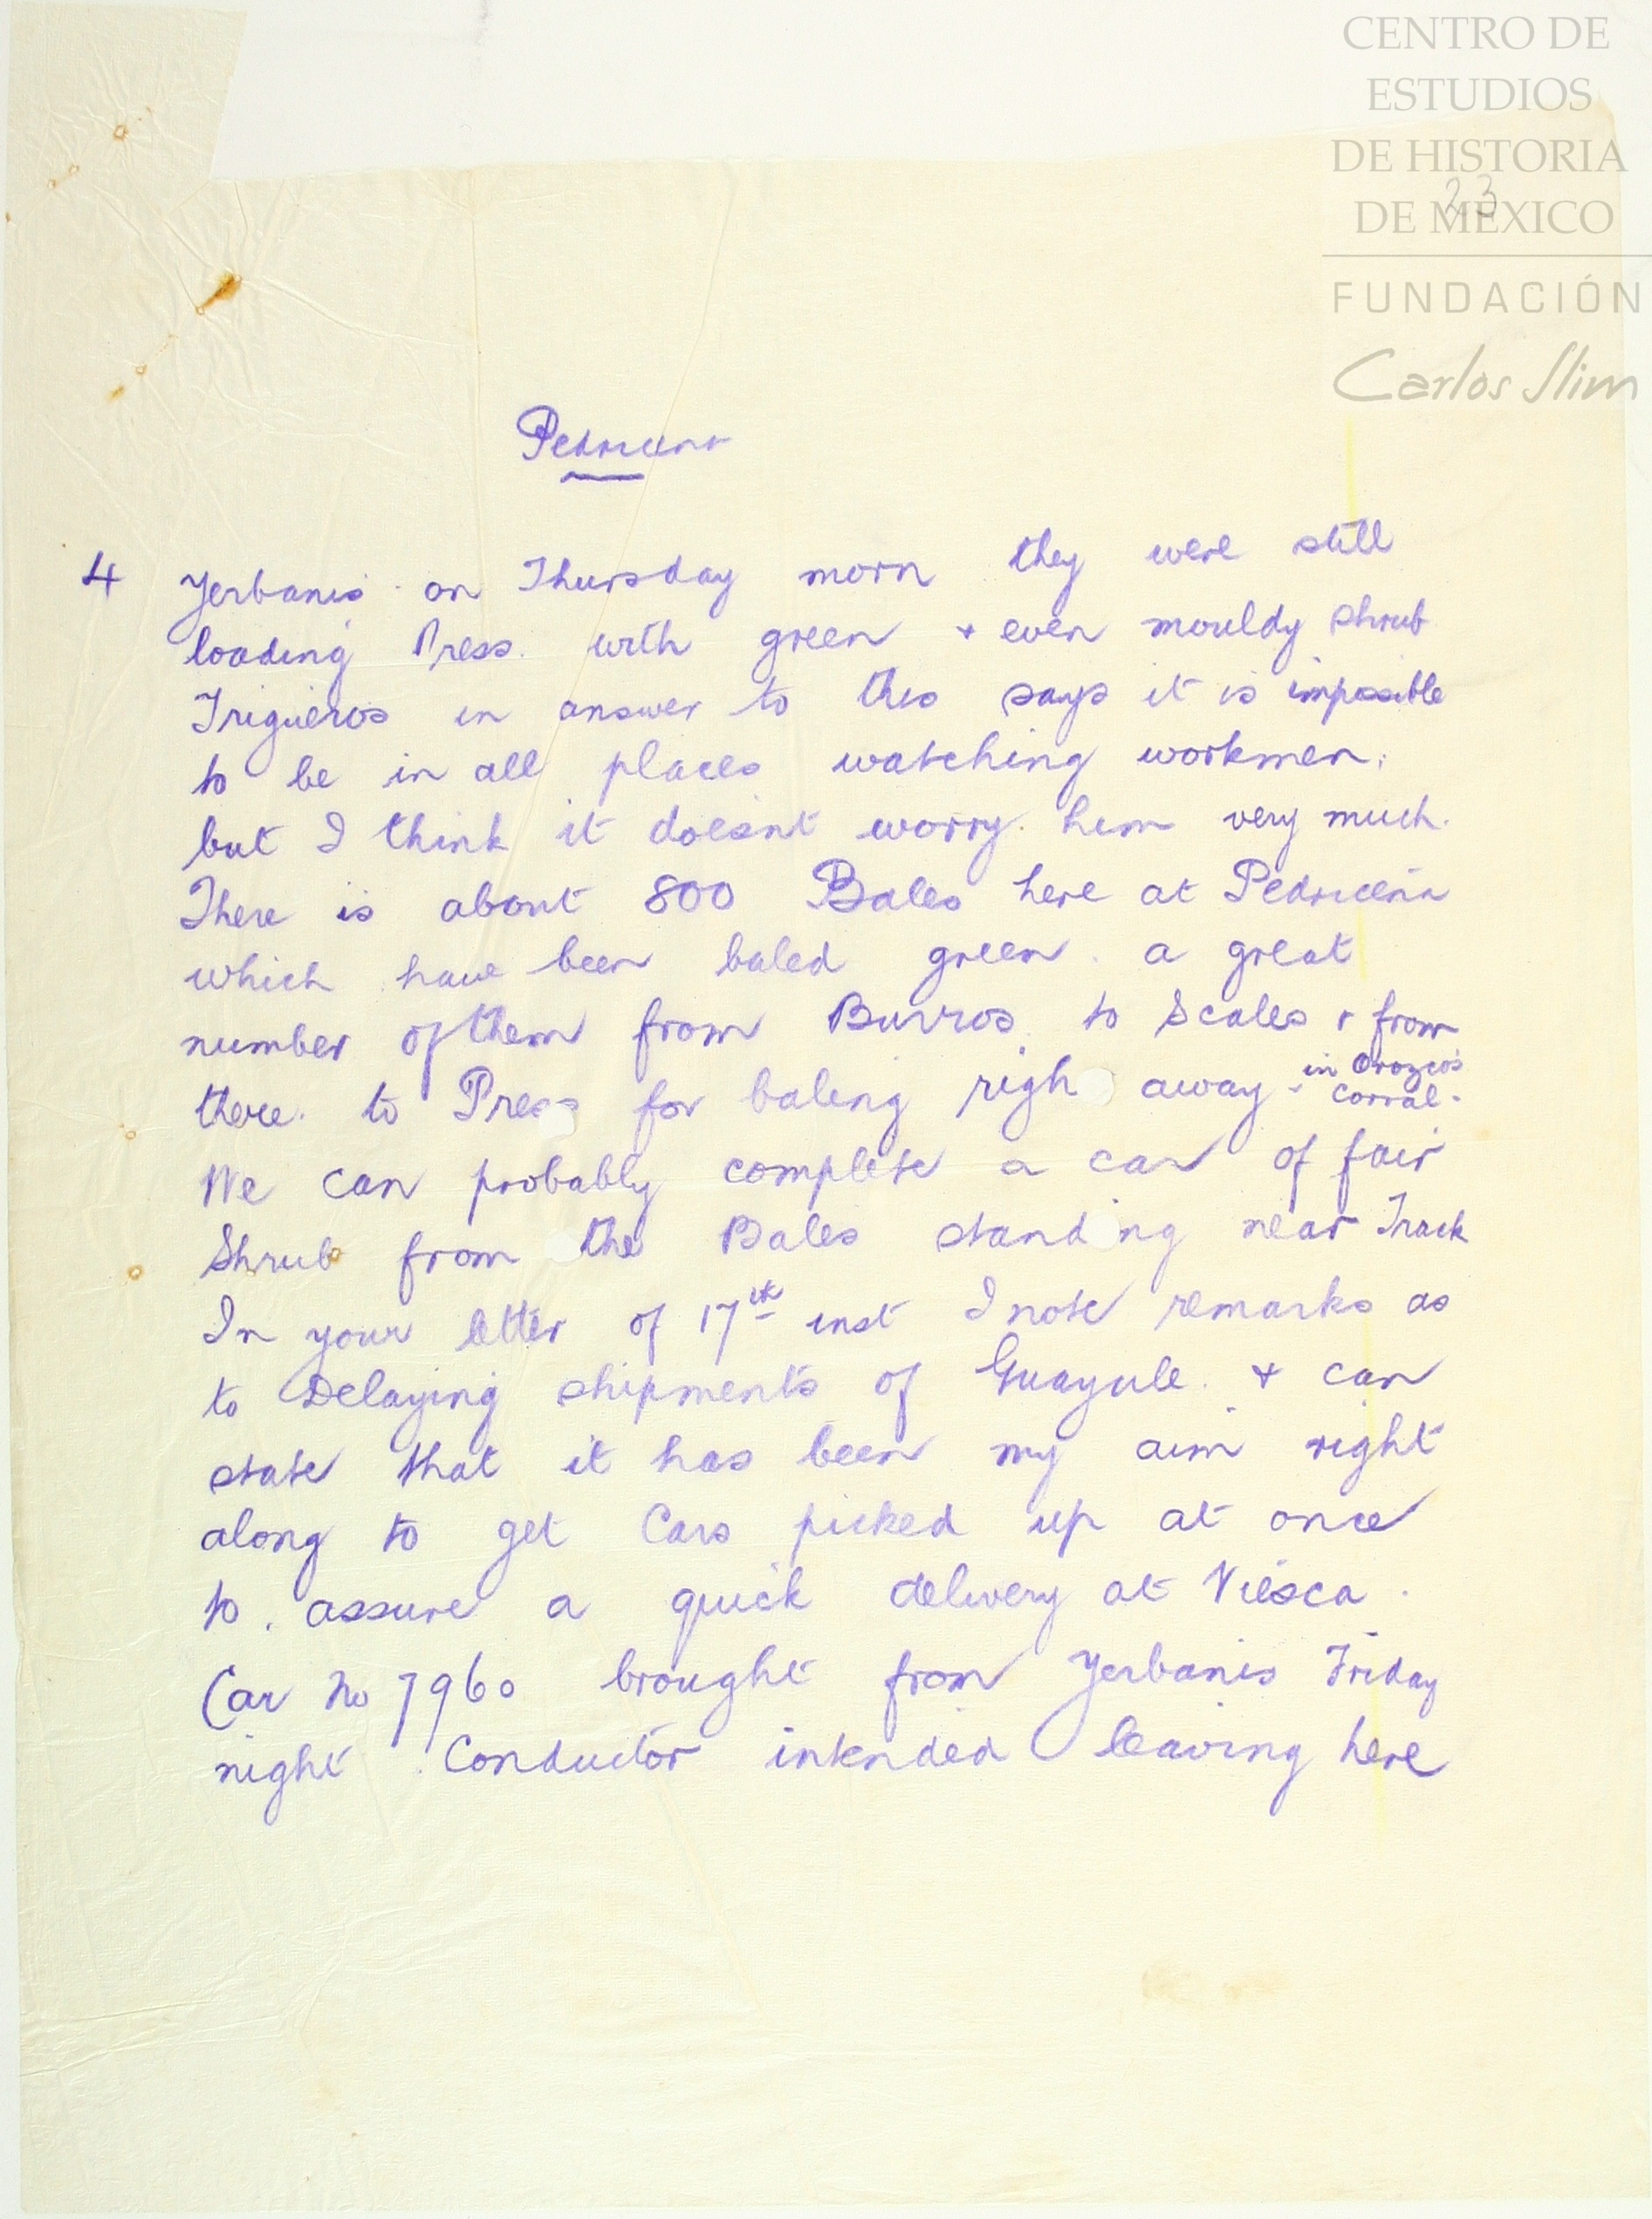 CENTRO DE
ESTUDIOS
DE HISTORIA
DE MÉXICO
23
FUNDACIÓN
Carlos Slim
Pedricena
4 Yerbanis on Thursday morn they were still
loading Press. with green + even mouldy shrub
Trigueros in answer to this says it is impossible
to be in all places watching workmen.
but I think it doesnt worry him very much.
There is about 800 Bales here at Pedriceña
which have been baled green. a great
number of them from Burros to Scales + from
there. to Press for baling righ away - in Orozco's
corral.
We can probably complete a car of fair
Shrub from the Bales stand ng near Track
In your letter of 17th inst I note remarks as
to Delaying shipments of Guayule. + can
state that it has been my aim right
along to get Cars picked up at once
to. assure a quick delivery at Viesca.
Car No 7960 brought from Yerbanis Friday
night. Conductor intended leaving here